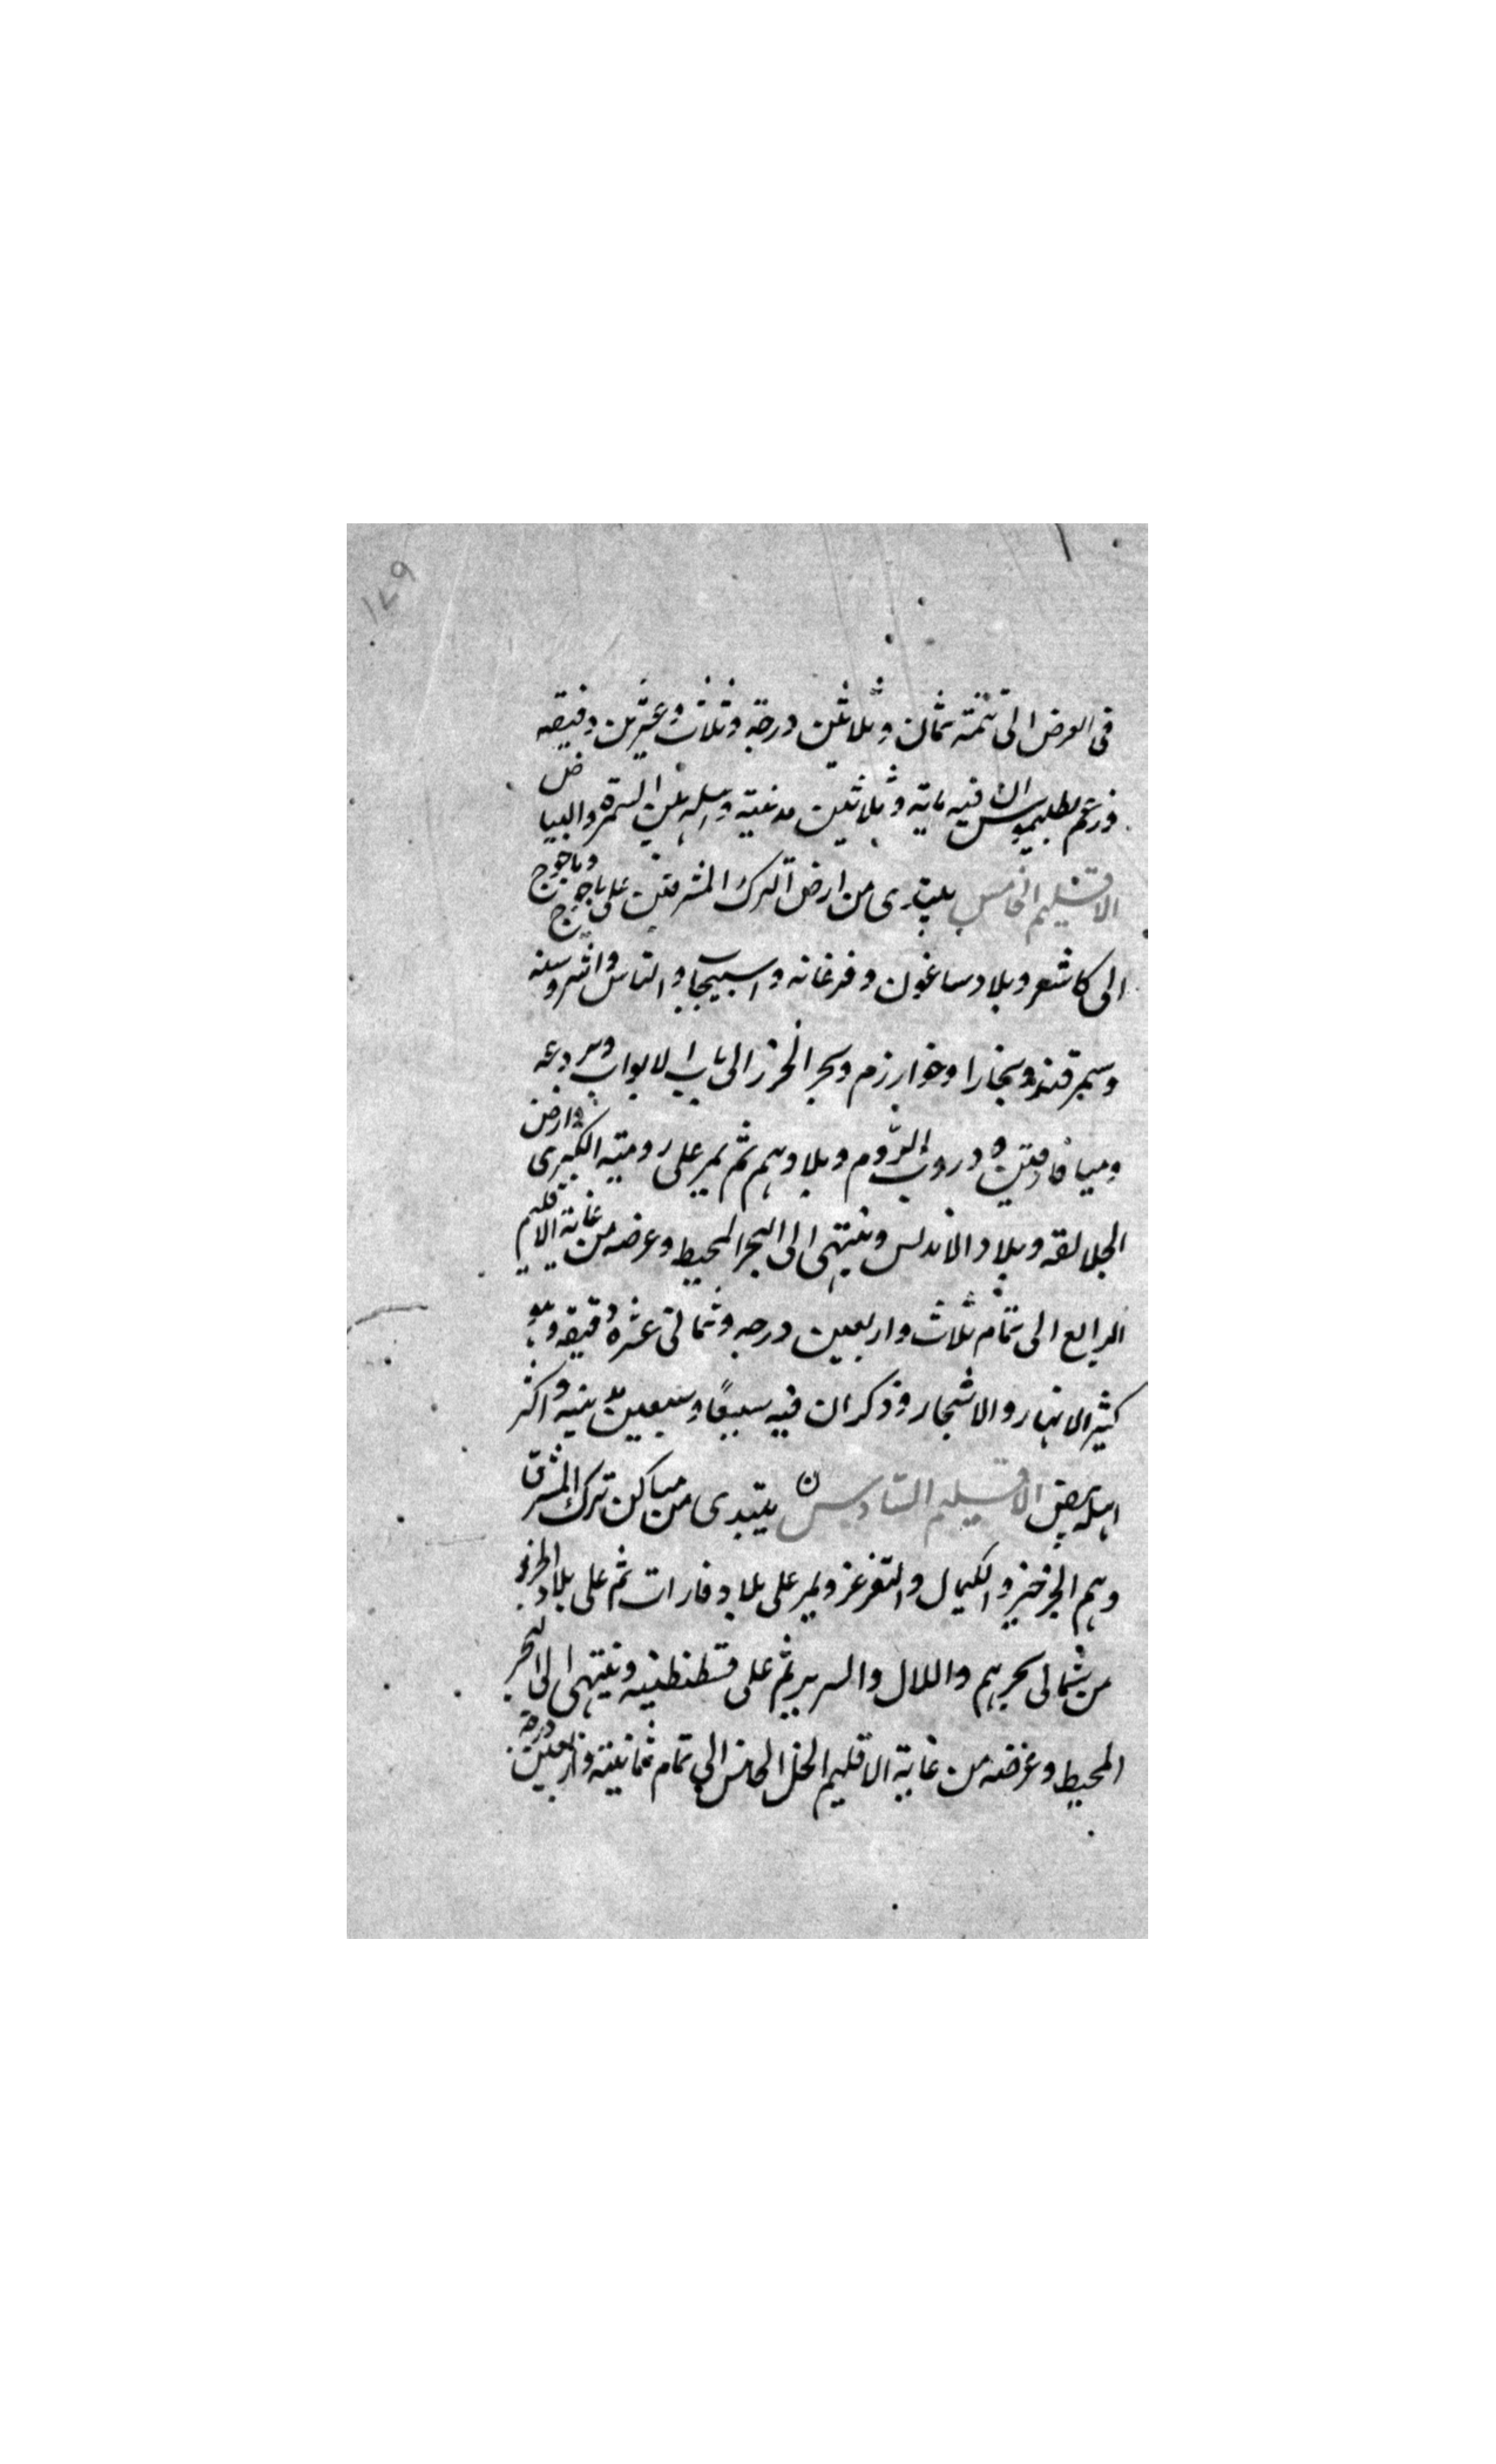 ١٤٩
فى العرض الى تتمته ثمان وثلاثين درجة وثلاث وعشرين دقيقه
وزعم بطلميوس ان فيه مايه وثلاثين مدينة واهله بين السمرة والبياض
الاقليم الخامس يبتدى من ارض الترك المشرقين على ياجوج وماجوج
الى كاشغر وبلاد ساغون وفرغانه واسبيجاب والشاس واشروسنه
وسمرقند وبخارا وخوارزم وبحر الخزر الى باب الابواب وبردعه
وميافارقين ودروب الروم وبلادهم ثم يمر على روميته الكبرى وارض
الجلالقه وبلاد الاندلس وينتهى الى البحر المحيط وعرضه من غاية الاقليم
الرابع الى تمام ثلاث واربعين درجه وثمانى عشره دقيقه وهو
كثير الانهار والاشجار وذكر ان فيه سبعًا وسبعين مدينه واكثر
اهله بيض الاقليم السادس يبتدى من مساكن ترك المشرق
وهم الخرخيز والكيمال والتغزغز ويمر على بلاد فارات ثم على بلاد الخزر
من شمالى بحرهم واللال والسرير ثم على قسطنطنيه وينتهى الى البحر
المحيط وعرضه من غاية الاقليم الخامس الى تمام ثمانية واربعين درجة